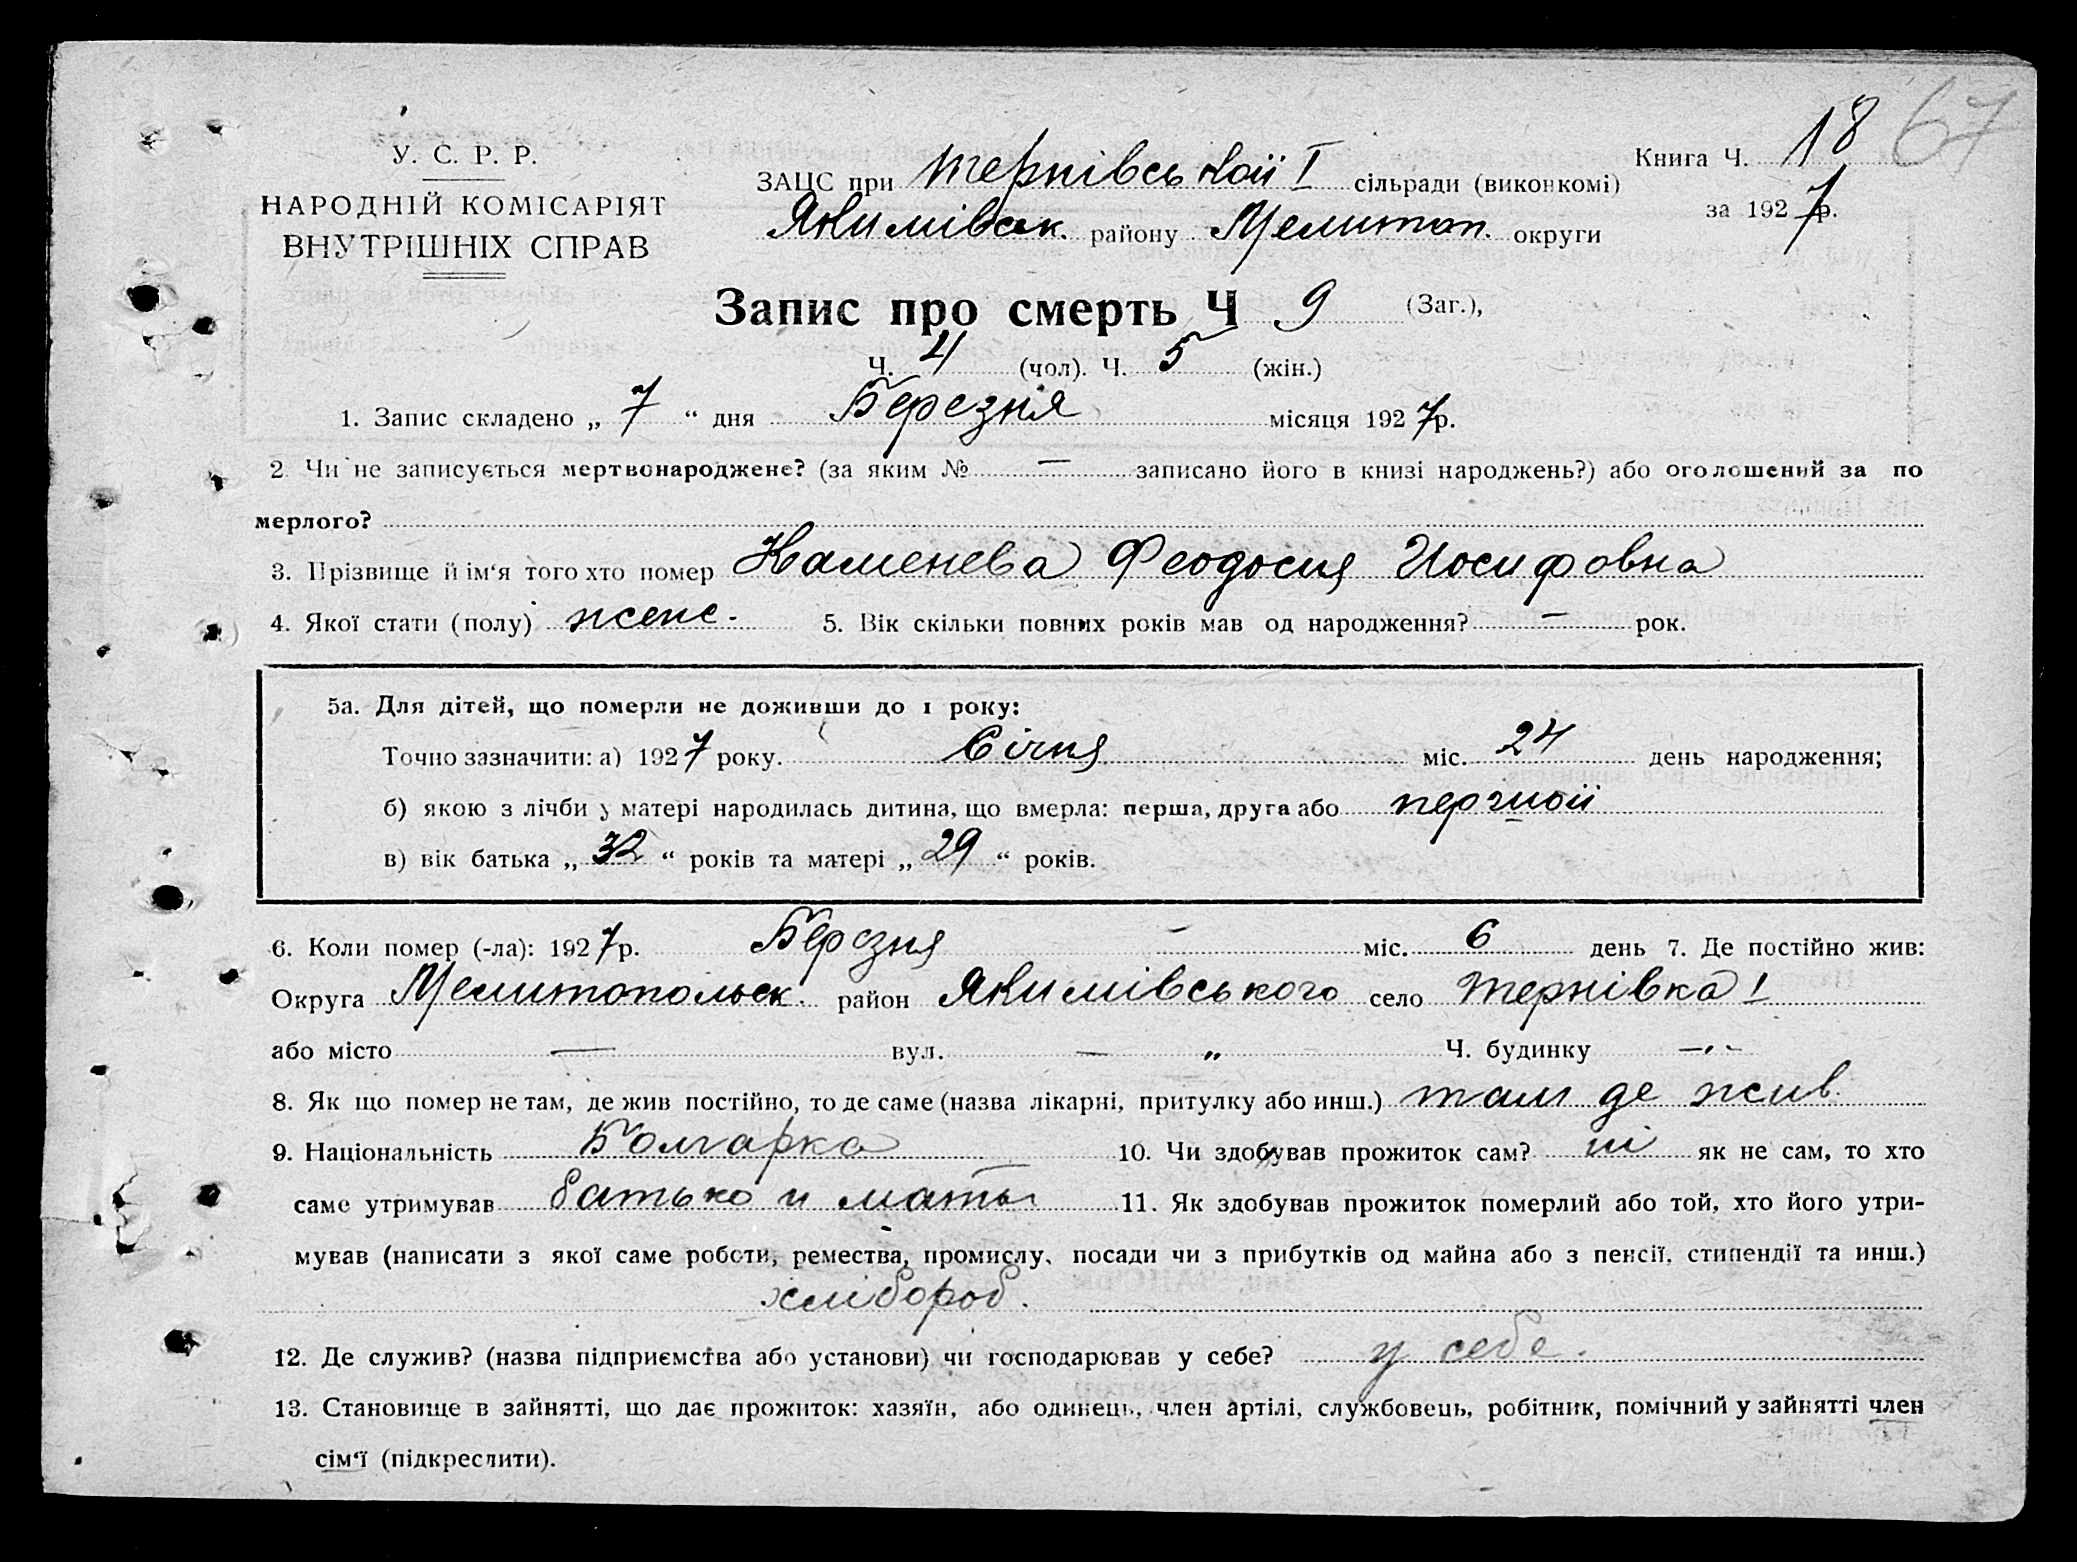 67
У. С. Р. Р.
НАРОДНІЙ КОМІСАРІЯТ
ВНУТРІШНІХ СПРАВ
Книга Ч. 18
за 1927 р.
ЗАЦС при Тернівської I сільради (виконкомі)
Якимівськ. району Мелитоп. округи
Запис про смерть Ч 9 (Заг.),
Ч. 4 (чол). Ч. 5 (жін.)
1. Запис складено „ 7 “ дня Березня місяця 1927 р.
2. Чи не записується мертвонароджене? (за яким № — записано його в книзі народжень?) або оголошений за по
мерлого?
3. Прізвище й ім‘я того хто помер Каменева Феодосия Иосифовна
4. Якої стати (полу) женс. 5. Вік скільки повних років мав од народження? — рок.
5а. Для дітей, що померли не доживши до 1 року:
Точно зазначити: а) 1927 року. Січня міс. 24 день народження;
б) якою з лічби у матері народилась дитина, що вмерла: перша, друга або першой
в) вік батька „ 32 “ років та матері „ 29 “ років.
6. Коли помер (-ла): 1927 р. Березня — міс. 6 день 7. Де постійно жив:
Округа Мелитопольск. район Якимівського село Тернівка I
або місто — вул. — „ Ч. будинку —„—
8. Як що помер не там, де жив постійно, то де саме (назва лікарні, притулку або инш.) там де жив.
9. Національність Болгарка 10. Чи здобував прожиток сам? ні як не сам, то хто
саме утримував батько и мать 11. Як здобував прожиток померлий або той, хто його утри-
мував (написати з якої саме роботи, ремества, промислу, посади чи з прибутків од майна або з пенсії, стипендії та инш.)
хлібороб.
12. Де служив? (назва підприємства або установи) чи господарював у себе? у себе.
13. Становище в зайнятті, що дає прожиток: хазяїн, або одинець, член артілі, службовець, робітник, помічний у зайнятті член
сім‘ї (підкреслити).